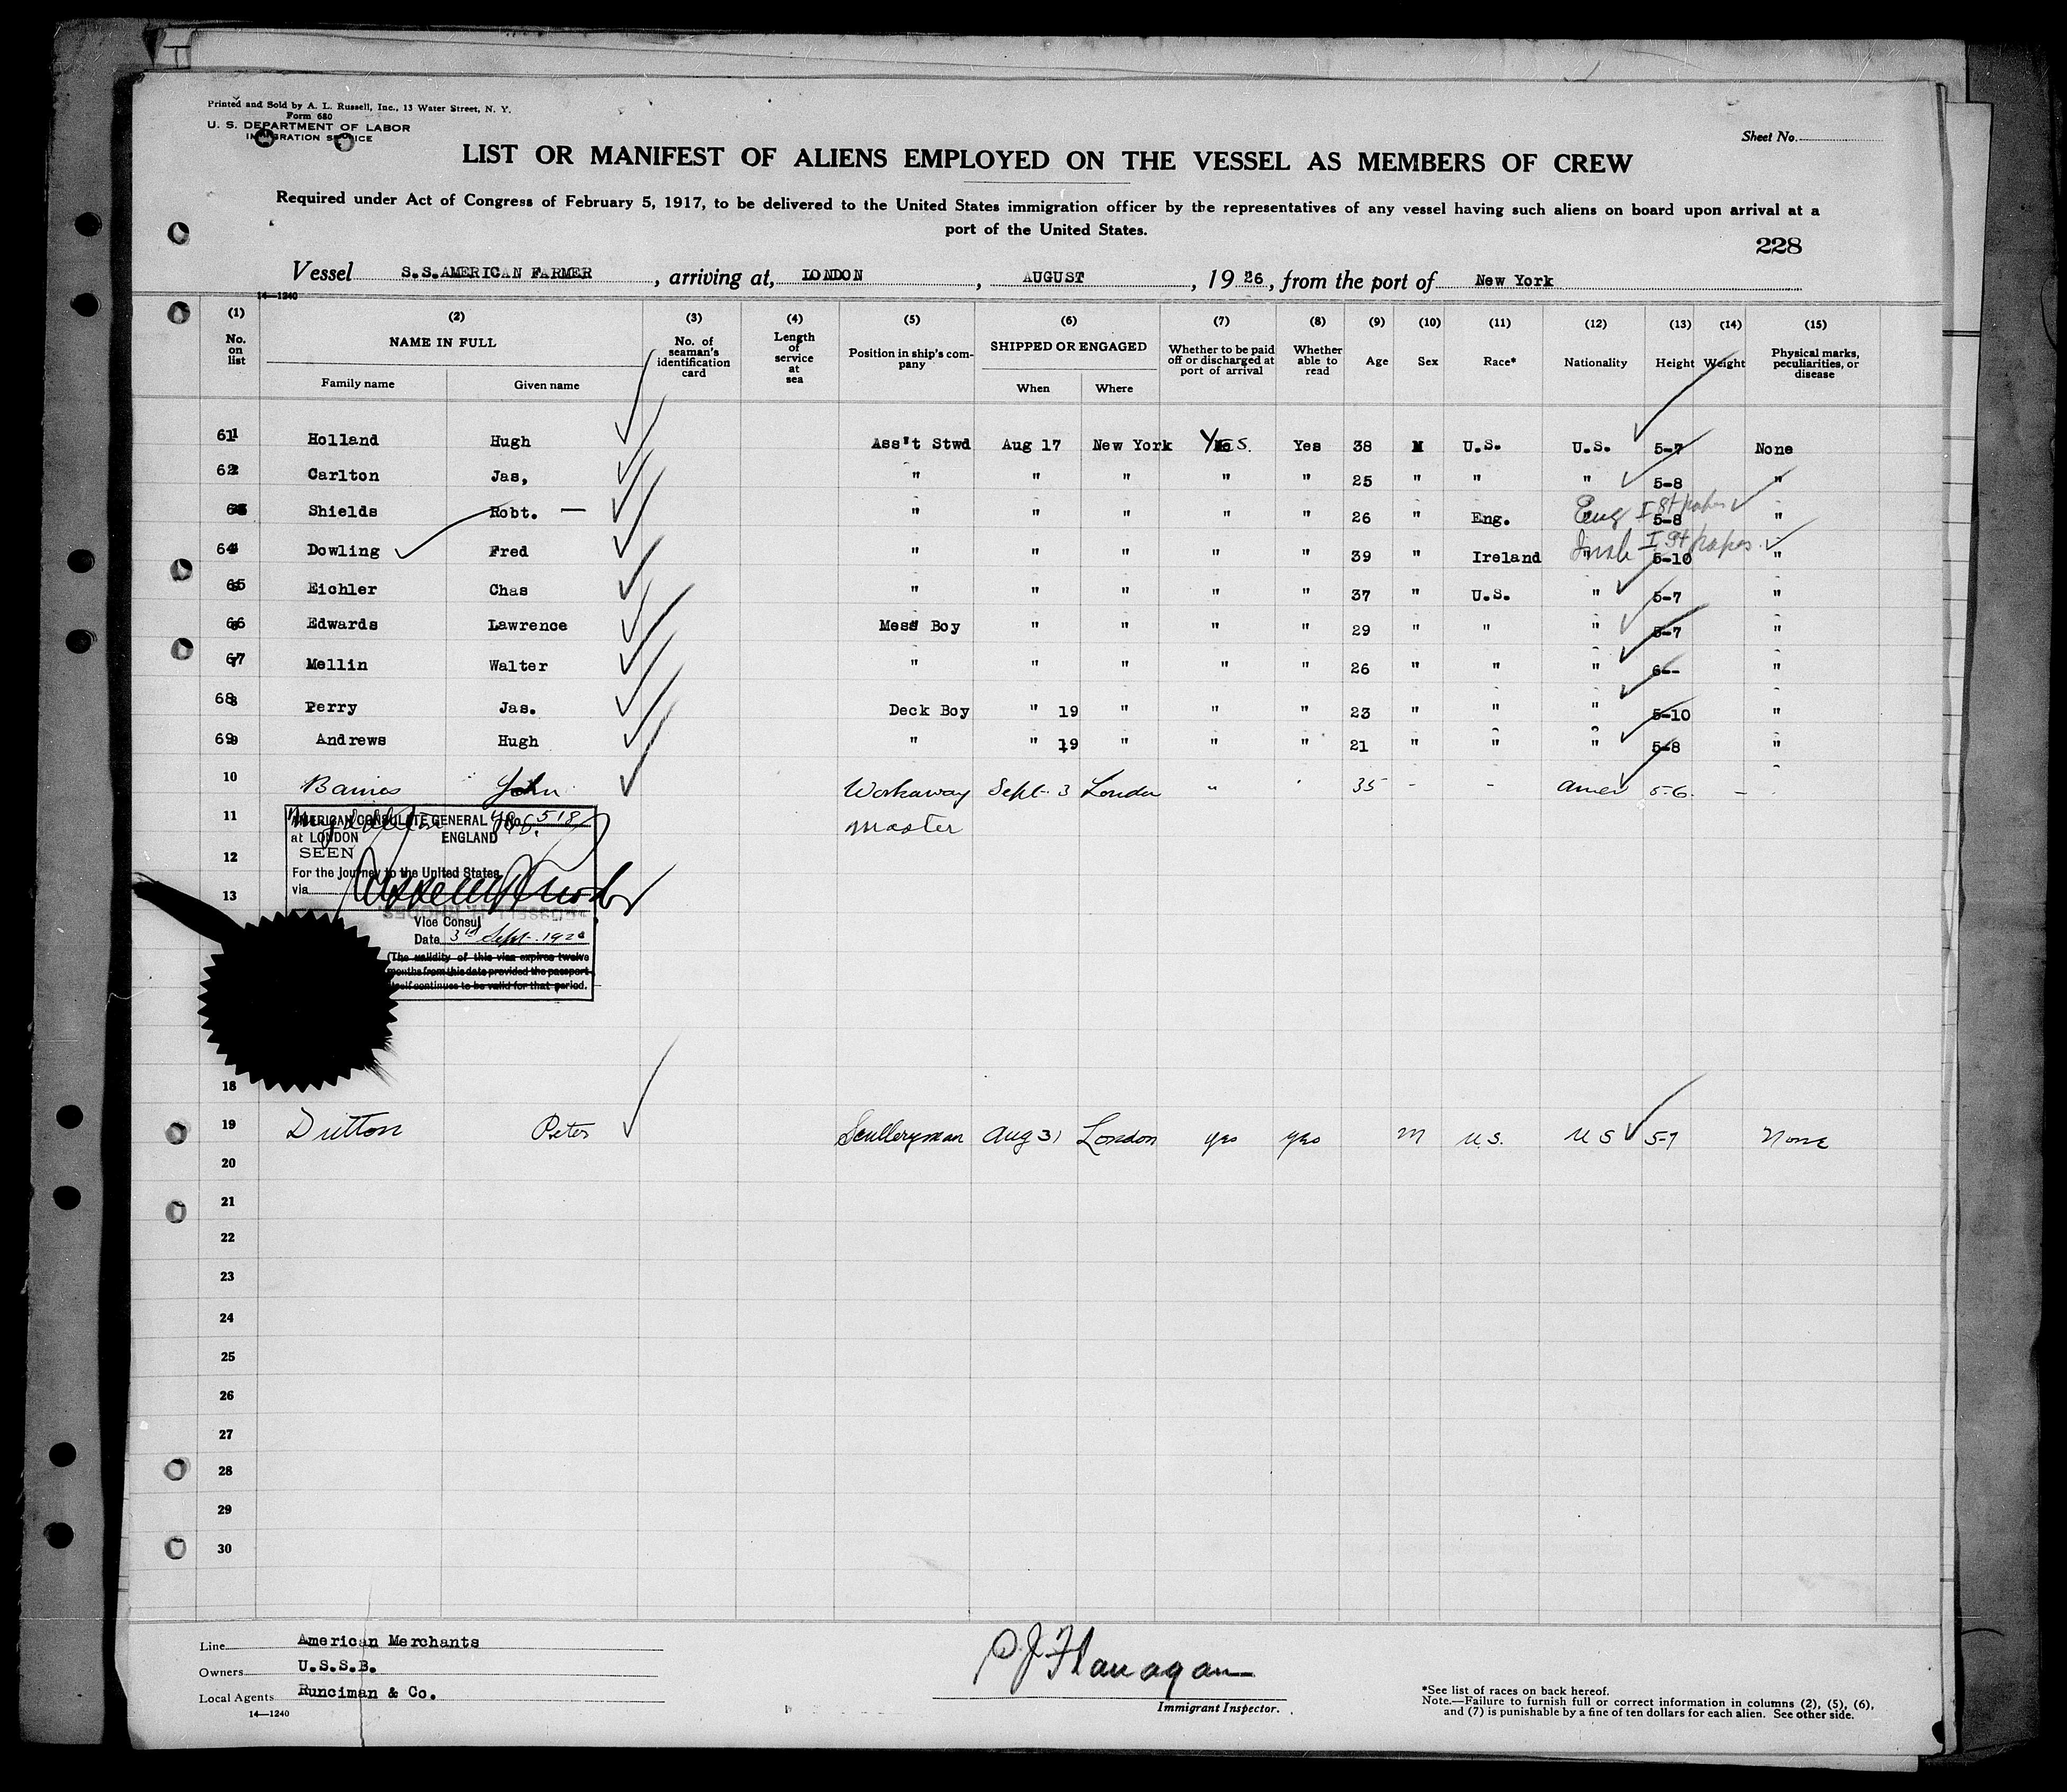 Printed and Sold by A. L. Russell, Inc., 13 Water Street, N. Y.
Form 680
U. S. DEPARTMENT OF LABOR
IMMIGRATION SERVICE
Sheet No.
LIST OR MANIFEST OF ALIENS EMPLOYED ON THE VESSEL AS MEMBERS OF CREW
Required under Act of Congress of February 5, 1917, to be delivered to the United States immigration officer by the representatives of any vessel having such aliens on board upon arrival at a
port of the United States.
228
Vessel S.S.AMERICAN FARMER, arriving at, LONDON, AUGUST, 19 26, from the port of New York
14—1240
(1) (2) (3) (4) (5) (6) (7) (8) (9) (10) (11) (12) (13) (14) (15)
No. on list NAME IN FULL Family name Given name No. of seaman's identification card Length of service at sea Position in ship's company SHIPPED OR ENGAGED When Where Whether to be paid off or discharged at port of arrival Whether able to read Age Sex Race* Nationality Height Weight Physical marks, peculiarities, or disease
61 Holland Hugh Ass't Stwd Aug 17 New York Yes. Yes 38 M U.S. U.S. 5-7 None
62 Carlton Jas, " " " " " 25 " " " 5-8 "
63 Shields Robt. — " " " " " 26 " Eng. Eng Ist papers 5-8 "
64 Dowling Fred " " " " " 39 " Ireland Irish Ist papers 5-10 "
65 Eichler Chas " " " " " 37 " U.S. " 5-7 "
66 Edwards Lawrence Mess Boy " " " " 29 " " " 5-7 "
67 Mellin Walter " " " " " 26 " " " 6-- "
68 Perry Jas. Deck Boy " 19 " " " 23 " " " 5-10 "
69 Andrews Hugh " " 19 " " " 21 " " " 5-8 "
10 John Workaway Sept. 3 London " ' 35 - - Amer 5-6. -
11 Master
12
13
AMERICAN CONSULATE GENERAL No. 518
at LONDON ENGLAND
SEEN
For the journey to the United States
via
Vice Consul
Date 3rd Sept. 1926
(The validity of this visa expires twelve
months from this date provided the passport
itself continues to be valid for that period.
18
19 Dutton Peter Sculleryman Aug 31 London yes yes M U.S. U S 5-7 None
20
21
22
23
24
25
26
27
28
29
30
Line American Merchants
Owners U.S.S.B.
Local Agents Runciman & Co.
14—1240
P J Flanagan
Immigrant Inspector.
*See list of races on back hereof.
Note.—Failure to furnish full or correct information in columns (2), (5), (6),
and (7) is punishable by a fine of ten dollars for each alien. See other side.